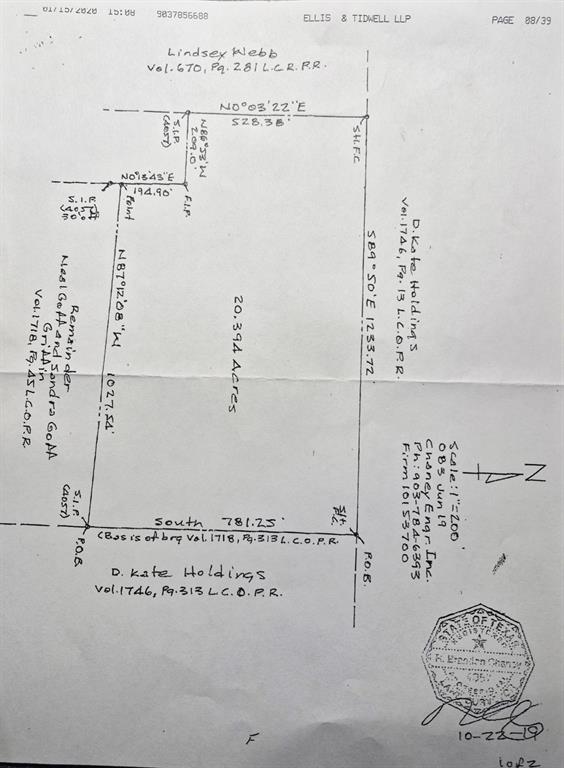 01/15/2020 15:08 9037856688 ELLIS & TIDWELL LLP PAGE 08/39
Lindsey Webb
Vol. 670, Pg. 281 L.C.R.P.R.
N0°03'22"E
528.38'
S.I.P.
(4057)
N86°53'W
209.0'
S.H.F.C.
N0°13'43"E
194.90'
F.I.P.
Point
S.I.P.
D. Kate Holdings
Vol. 1746, Pg. 13 L.C.O.P.R.
S89°50'E 1233.72'
20.394 Acres
N87°12'08"W 1027.54'
Remainder
Neal Goff and Sandra Goff
Griffin
Vol. 1718, Pg. 45 L.C.O.P.R.
N
Scale: 1"=200'
083 Jun 19
Chaney Engr. Inc.
Ph: 903-784-6393
Firm 10153700
S.I.P.
(4057)
P.O.B.
South 781.25'
(Basis of brg Vol. 1718, Pg. 313 L.C.O.P.R.
P.O.B.
D. Kate Holdings
Vol. 1746, Pg. 313 L.C.O.P.R.
STATE OF TEXAS
REGISTERED
R. Brandon Chaney
4057
10-22-19
F
1 of 2